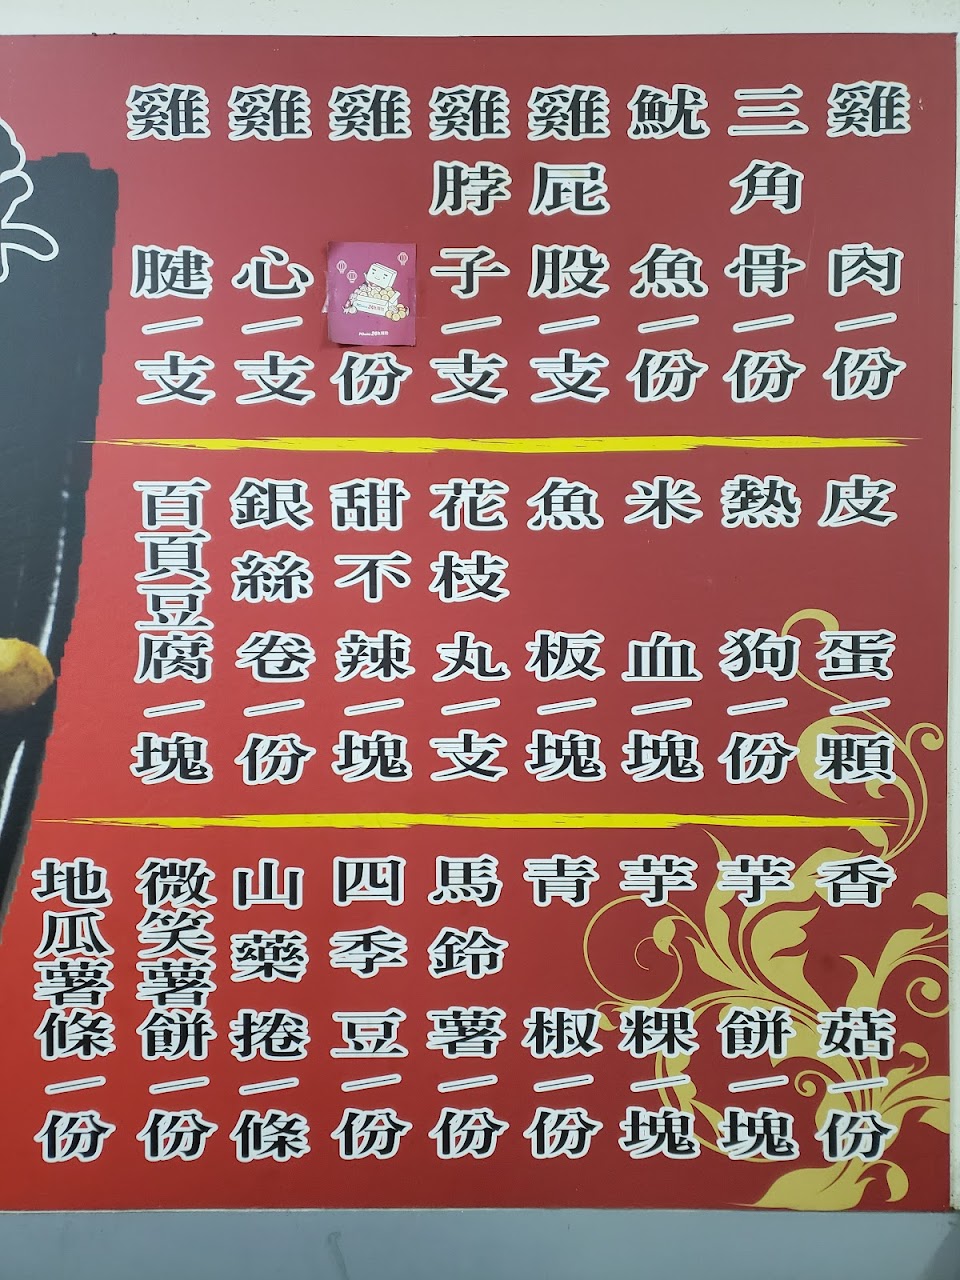 雞肉一份
三角骨一份
魷魚一份
雞屁股一支
雞脖子一支
雞份
雞心一支
雞腱一支
皮蛋一顆
熱狗一份
米血一塊
魚板一塊
花枝丸一支
甜不辣一塊
銀絲卷一份
百頁豆腐一塊
香菇一份
芋餅一塊
芋粿一塊
青椒一份
馬鈴薯一份
四季豆一份
山藥捲一條
微笑薯餅一份
地瓜薯條一份